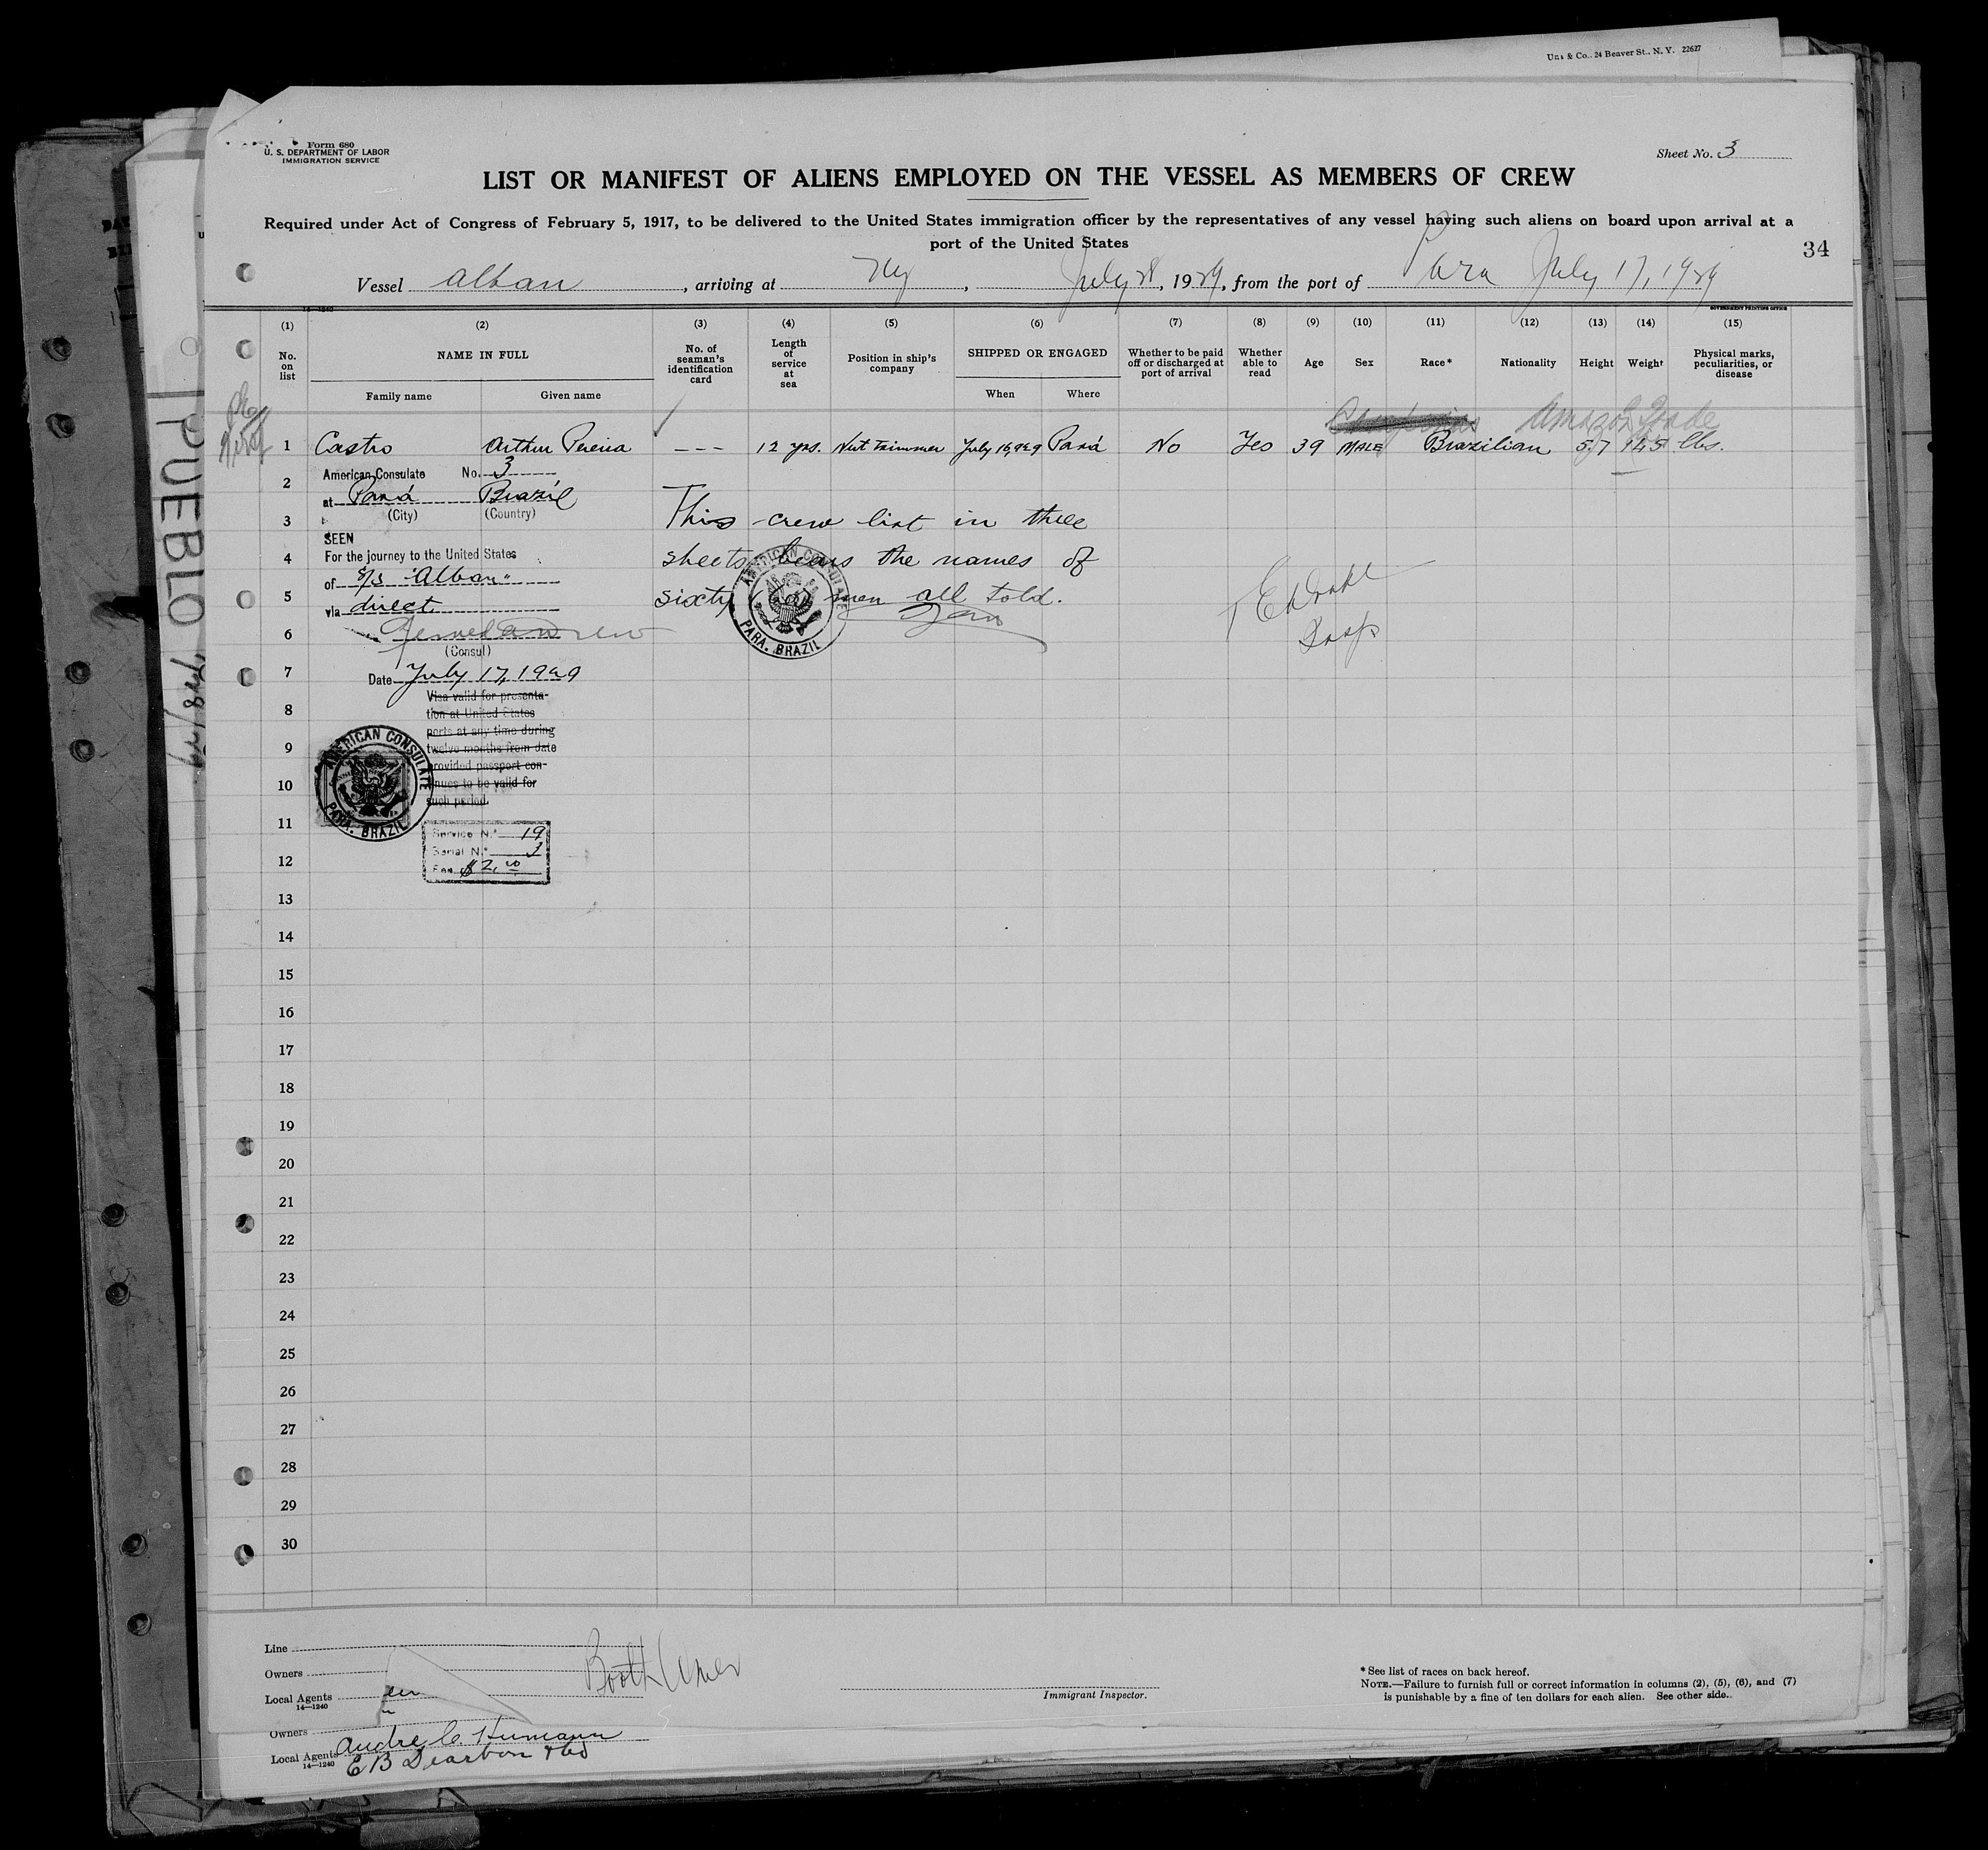 Co., 24 Beaver St., N. Y. 22627
Form 680
U. S. DEPARTMENT OF LABOR
IMMIGRATION SERVICE
Sheet No. 3
LIST OR MANIFEST OF ALIENS EMPLOYED ON THE VESSEL AS MEMBERS OF CREW
Required under Act of Congress of February 5, 1917, to be delivered to the United States immigration officer by the representatives of any vessel having such aliens on board upon arrival at a
port of the United States
34
Vessel Alban, arriving at Ny, July 28, 1929, from the port of Para July 17, 1929
14—1240
GOVERNMENT PRINTING OFFICE
(1) (2) (3) (4) (5) (6) (7) (8) (9) (10) (11) (12) (13) (14) (15)
No. on list
NAME IN FULL
Family name Given name
No. of seaman's identification card
Length of service at sea
Position in ship's company
SHIPPED OR ENGAGED
When Where
Whether to be paid off or discharged at port of arrival
Whether able to read
Age
Sex
Race*
Nationality
Height
Weight
Physical marks, peculiarities, or disease
Amazon Trade
1 Castro Arthur Pereira --- 12 yrs. Nut Trimmer July 16, 929 Pará No Yes 39 MALE Brazilian 5,7 145 lbs.
American Consulate No. 3
at Pará Brazil
(City) (Country)
SEEN
For the journey to the United States
of S/S "Alban"
via direct
(Consul)
Date July 17, 1929
Visa valid for presenta-
tion at United States
ports at any time during
twelve months from date
provided passport con-
tinues to be valid for
such period.
AMERICAN CONSULATE
PARA. BRAZIL
Service N.º 19
Serial N.º 3
Fee $2.00
This crew list in three
sheets bears the names of
sixty men all told.
AMERICAN CONSULATE
PARA. BRAZIL
2
3
4
5
6
7
8
9
10
11
12
13
14
15
16
17
18
19
20
21
22
23
24
25
26
27
28
29
30
Line
Owners
Local Agents
14—1240
Booth
Immigrant Inspector.
*See list of races on back hereof.
NOTE.—Failure to furnish full or correct information in columns (2), (5), (6), and (7)
is punishable by a fine of ten dollars for each alien. See other side.
Owners
Local Agents
14—1240
PUEBLO 7/28/29